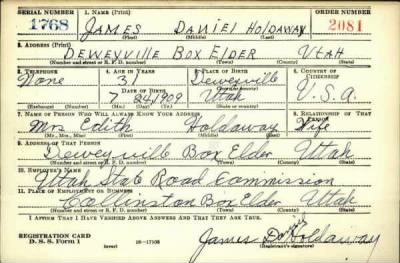 SERIAL NUMBER 1. NAME (Print) ORDER NUMBER
1768 JAMES DANIEL HOLDAWAY 2081
(First) (Middle) (Last)
2. ADDRESS (Print)
DEWEYVILLE BOX ELDER UTAH
(Number and street or R. F. D. number) (Town) (County) (State)
3. TELEPHONE 4. AGE IN YEARS 5. PLACE OF BIRTH 6. COUNTRY OF CITIZENSHIP
None 31 Deweyville
DATE OF BIRTH (Town or county)
7 24 1909 Utah U.S.A.
(Exchange) (Number) (Mo.) (Day) (Yr.) (State or country)
7. NAME OF PERSON WHO WILL ALWAYS KNOW YOUR ADDRESS 8. RELATIONSHIP OF THAT PERSON
Mrs Edith Holdaway Wife
(Mr., Mrs., Miss) (First) (Middle) (Last)
9. ADDRESS OF THAT PERSON
Deweyville Box Elder Utah
(Number and street or R. F. D. number) (Town) (County) (State)
10. EMPLOYER'S NAME
Utah State Road Commission
11. PLACE OF EMPLOYMENT OR BUSINESS
Collinston Box Elder Utah
(Number and street or R. F. D. number) (Town) (County) (State)
I AFFIRM THAT I HAVE VERIFIED ABOVE ANSWERS AND THAT THEY ARE TRUE.
REGISTRATION CARD
D. S. S. Form 1 (over) 16-17105 James D Holdaway
(Registrant's signature)